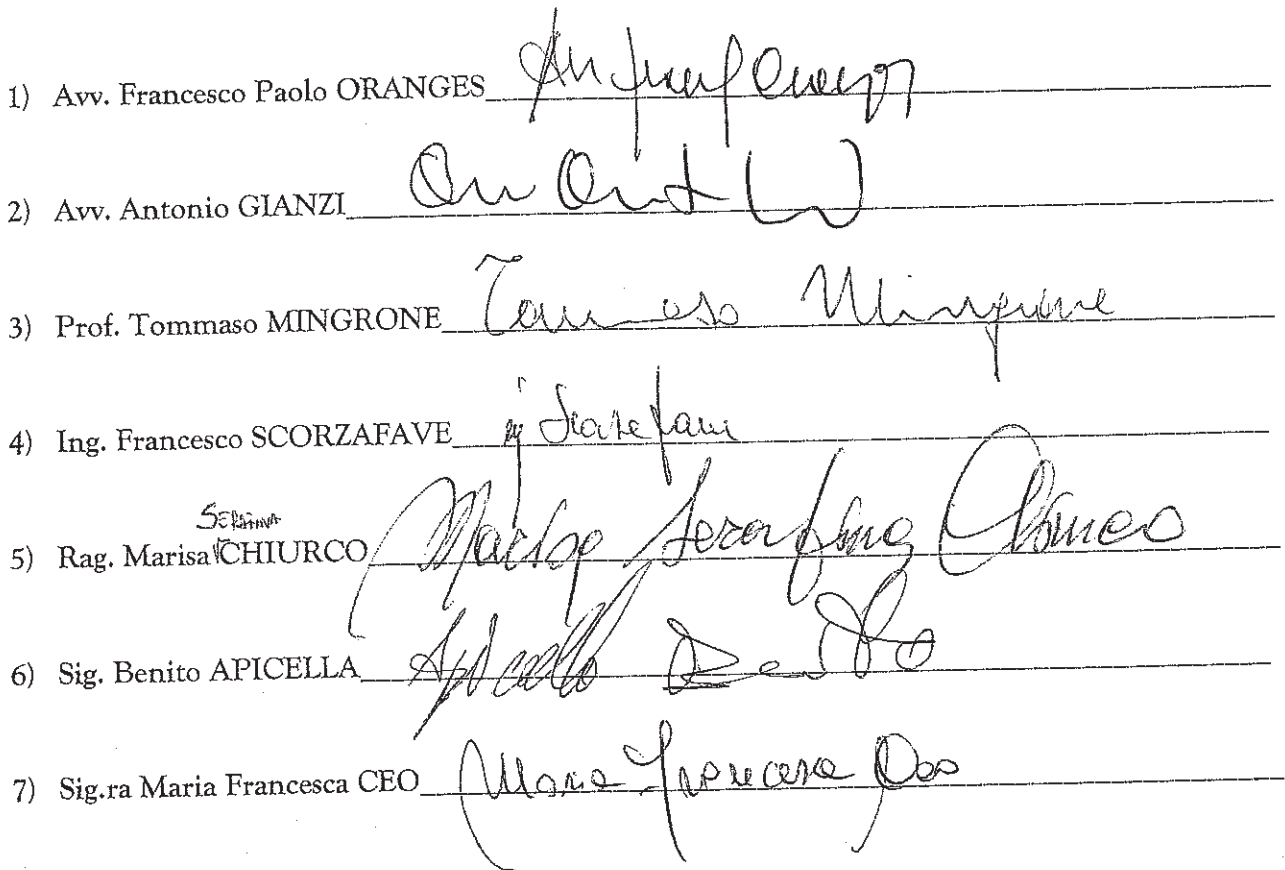 1) Avv. Francesco Paolo ORANGES
2) Avv. Antonio GIANZI
3) Prof. Tommaso MINGRONE Tommaso Mingrone
4) Ing. Francesco SCORZAFAVE
5) Rag. Marisa CHIURCO Marisa Serafina Chiurco
6) Sig. Benito APICELLA Apicella Benito
7) Sig.ra Maria Francesca CEO Maria Francesca Ceo